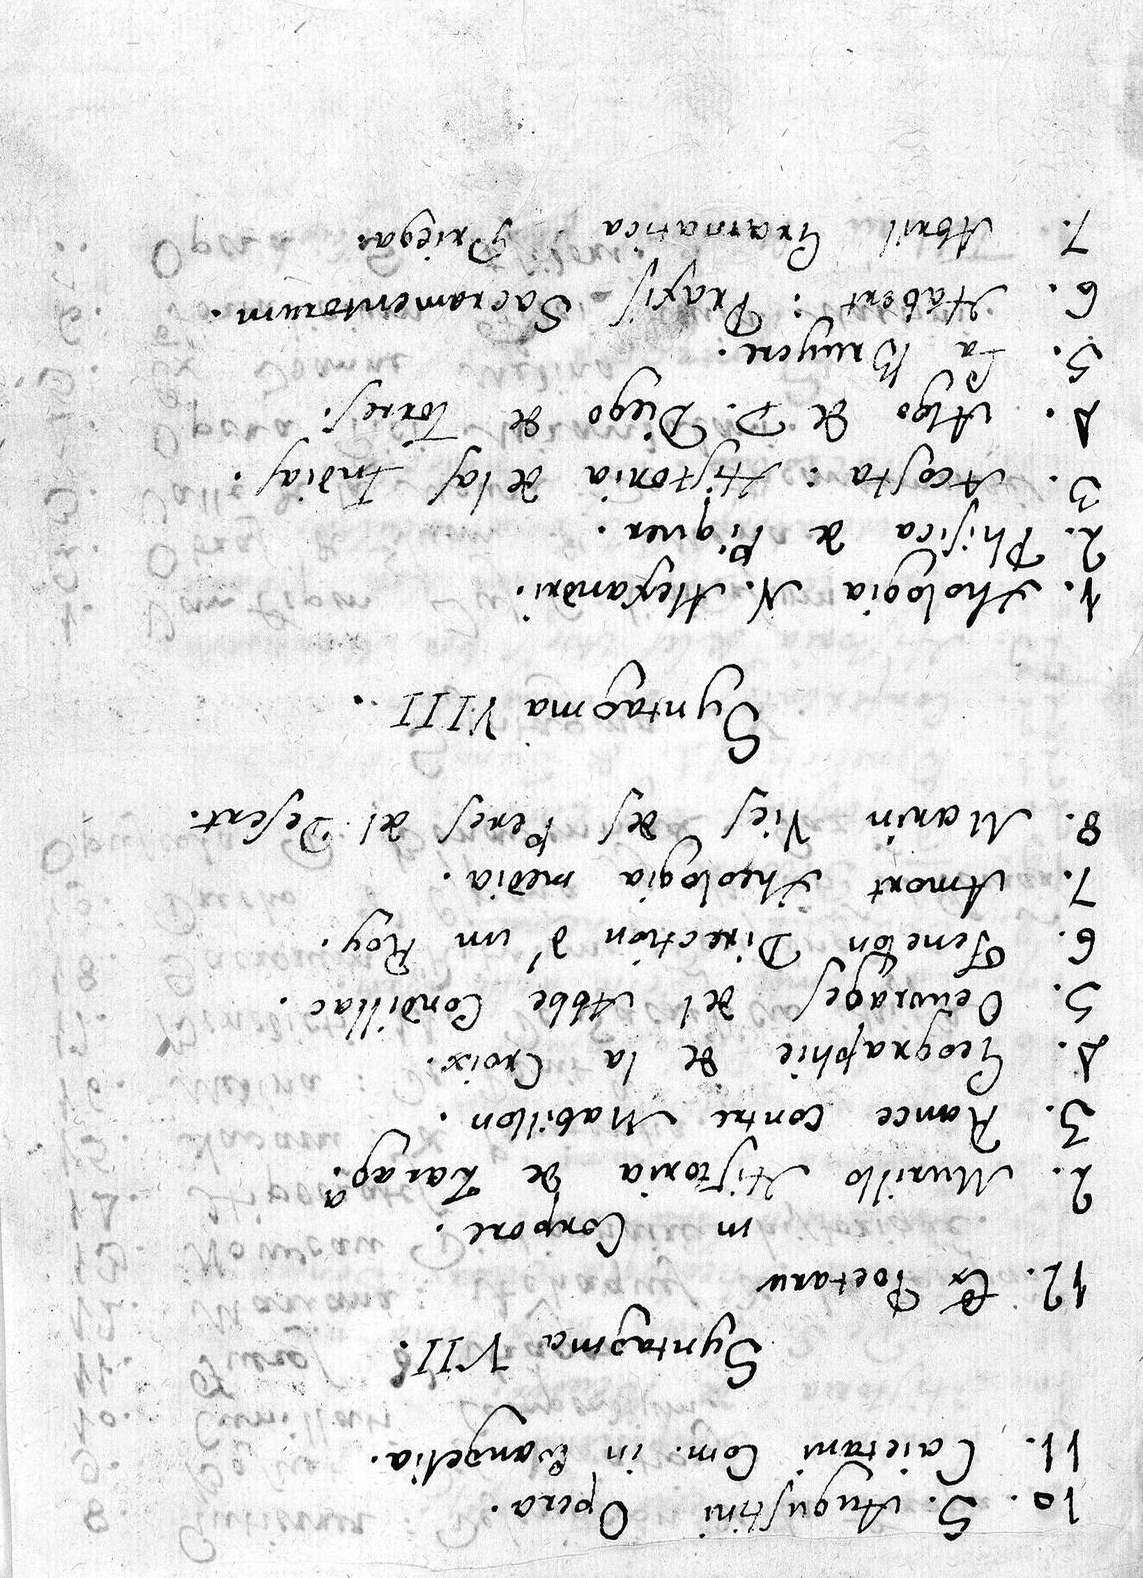 10. S. Augustini Opera.
11. Caietani Com. in Evangelia.
Syntagma VII.
12. Ex Poetaru
in Corpore.
2. Murillo Historia de Zarag.ª
3. Rance contre Mabillon.
4. Geographie de la Croix.
5. Oeuvrages del Abbe Condillac.
6. Fenelon Direction d'un Roy.
7. Amort Theologia media.
8. Marin Vies des Peres del Desert.
Syntagma VIII.
1. Theologia N. Alexandri.
2. Phisica de Piquer.
3. Acosta: Historia de las Indias.
4. Algo de D. Diego de Torres.
5. La Bruyere.
6. Habert: Praxis Sacramentorum.
7. Abril Gramatica Griega.